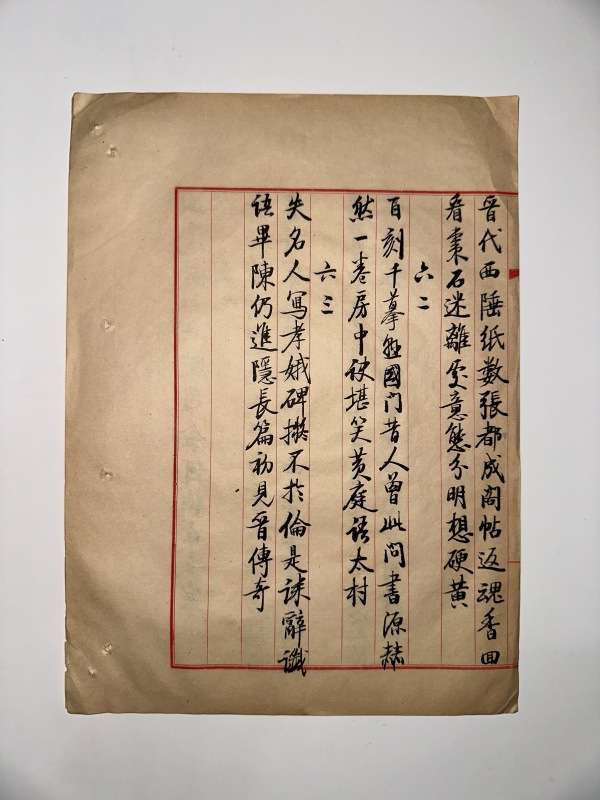 晉代西陲紙數張都成閣帖返魂香回
看棗石迷離處意態分明想硬黄
六二
百刻千摹懸國門昔人曾此問書源赫
然一卷房中訣堪笑黄庭語太村
六三
失名人寫孝娥碑擬不於倫是誄辭讖
語畢陳仍進隱長篇初見晉傳奇